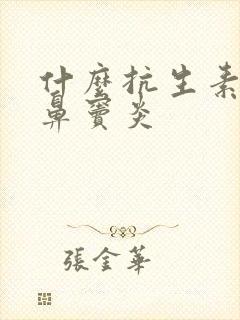 什麼抗生素
鼻竇炎
張金華